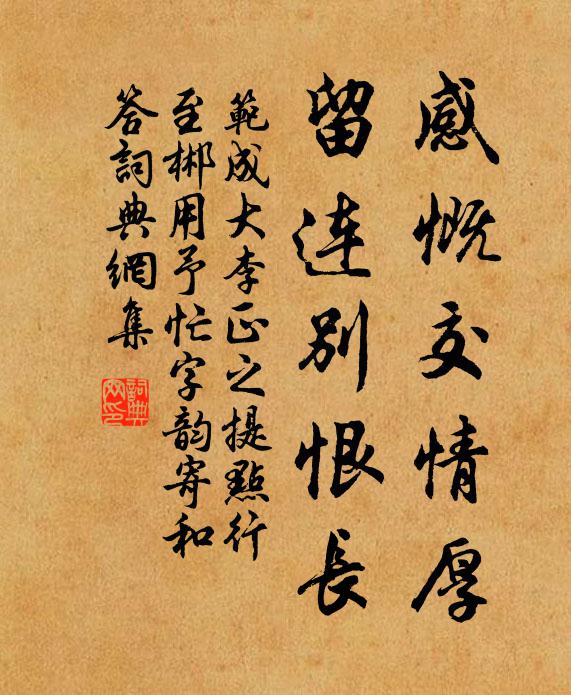 感慨交情厚
留连別恨長
範成大李正之提點行
至郴用予忙字韵寄和
答詞典網集
詞典网印